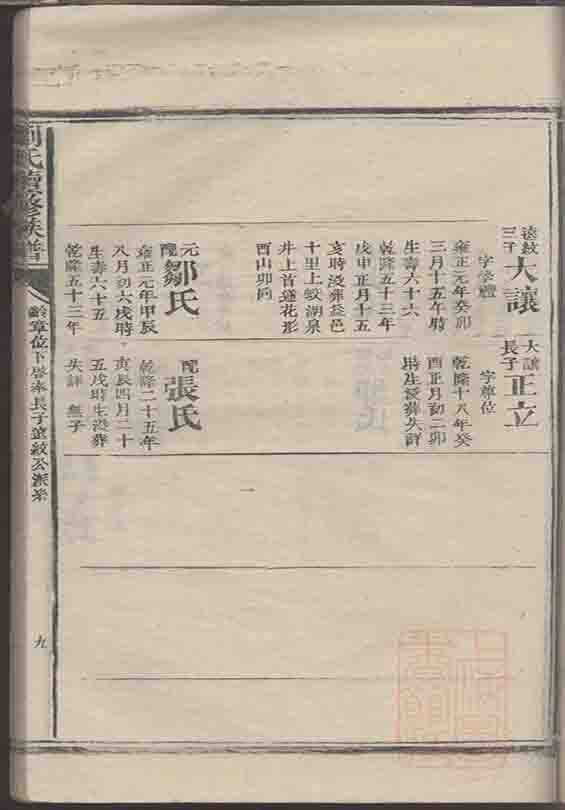 遠紋三子
大讓
字學禮
雍正元年癸卯
三月十五午時
生壽六十六
乾隆五十三年
戊申正月十五
亥時沒葬益邑
十里上蛟湖泉
井上首蓮花形
酉山卯向
元配
鄒氏
雍正元年甲辰
八月初六戌時
生壽六十五
乾隆五十三年
大讓長子
正立
字尊位
乾隆十八年癸
酉正月初二卯
時生沒葬失詳
配
張氏
乾隆二十五年
庚辰四月二十
五戌時生沒葬
失詳 無子
劉氏續修族譜
齡章位下啓奉長子遠紋公派系
九